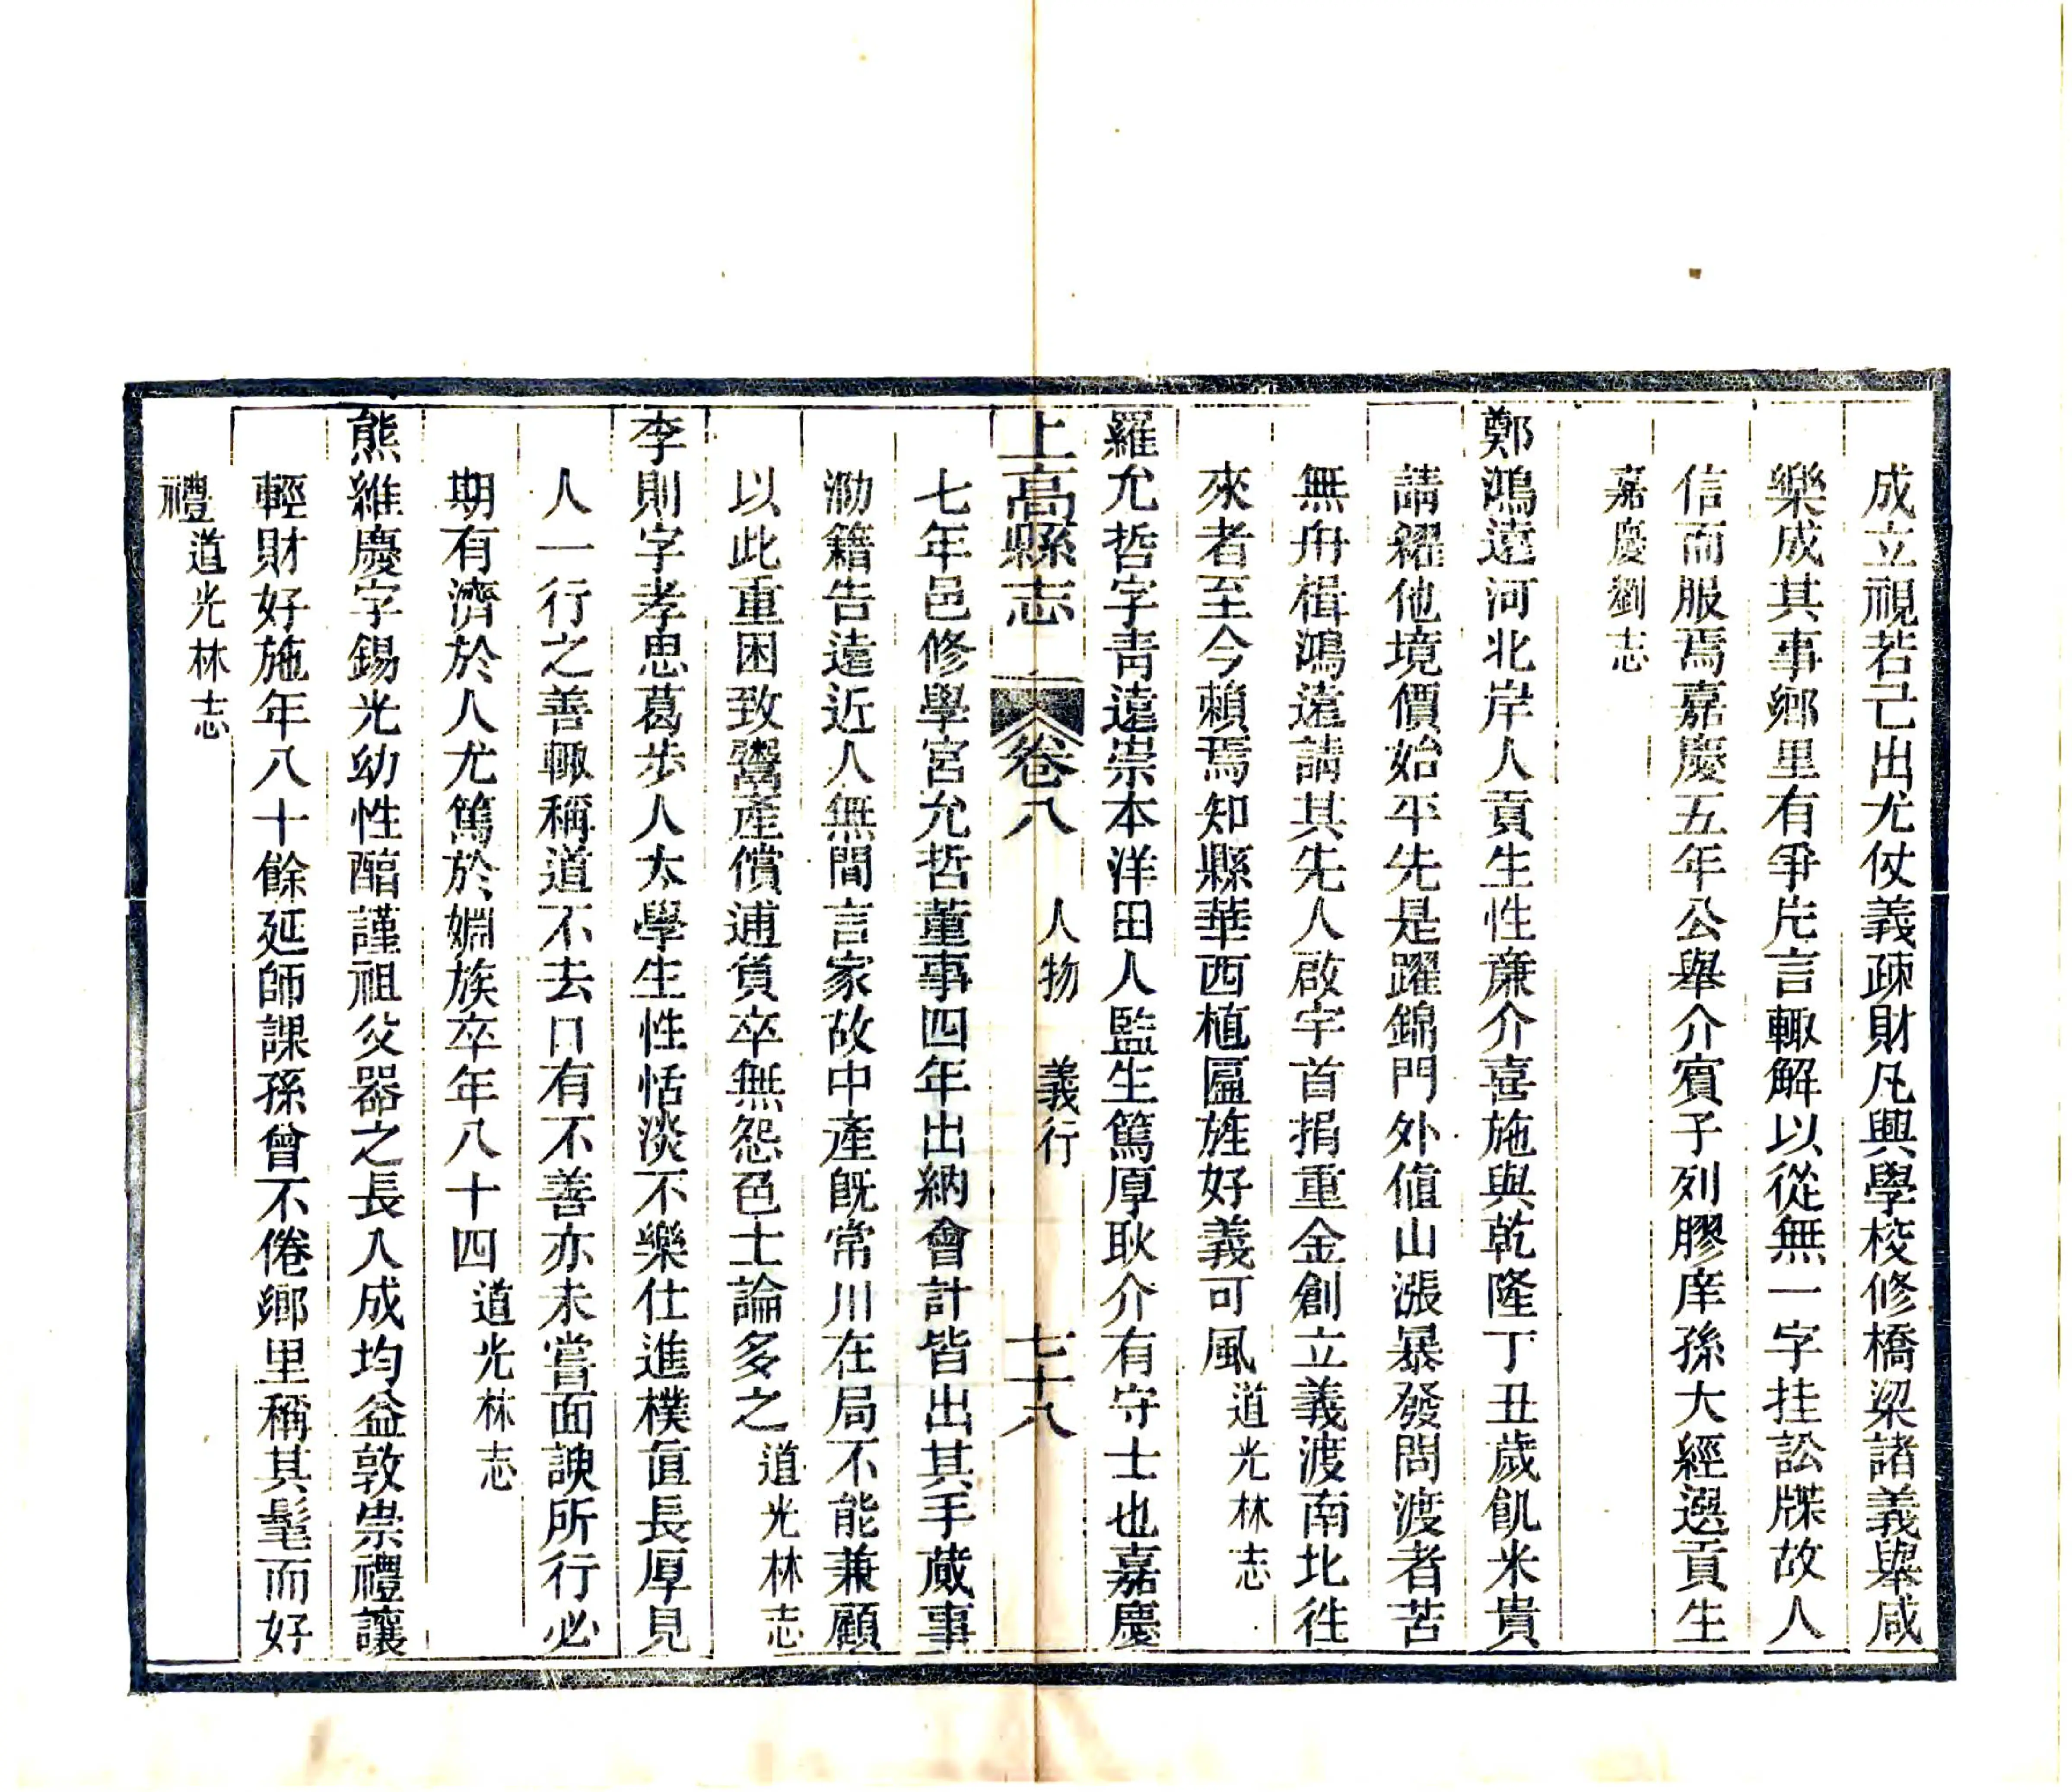 成立視若己出尤仗義疎財凡興學校修橋梁諸義舉咸
樂成其事鄉里有爭片言輙解以從無一字挂訟牒故人
信而服焉嘉慶五年公舉介賓子列膠庠孫大經選貢生
嘉慶劉志
鄭鴻遠河北岸人貢生性亷介喜施與乾隆丁丑歲飢米貴
請糴他境價始平先是躍錦門外值山漲暴發問渡者苦
無舟楫鴻遠請其先人啟宇首捐重金創立義渡南北徃
來者至今賴焉知縣華西植匾旌好義可風道光林志
羅允哲字青遠崇本洋田人監生篤厚耿介有守士也嘉慶
上高縣志 卷八 人物 義行 七十八
七年邑修學宮允哲董事四年出納會計皆出其手蕆事
泐籍告遠近人無間言家故中產旣常川在局不能兼顧
以此重困致鬻產償逋負卒無怨色士論多之道光林志
李則字孝思葛步人太學生性恬淡不樂仕進樸直長厚見
人一行之善輙稱道不去口有不善亦未嘗面諛所行必
期有濟於人尤篤於婣族卒年八十四道光林志
熊維慶字錫光幼性醕謹祖父器之長入成均益敦崇禮讓
輕財好施年八十餘延師課孫曾不倦鄉里稱其髦而好
禮道光林志